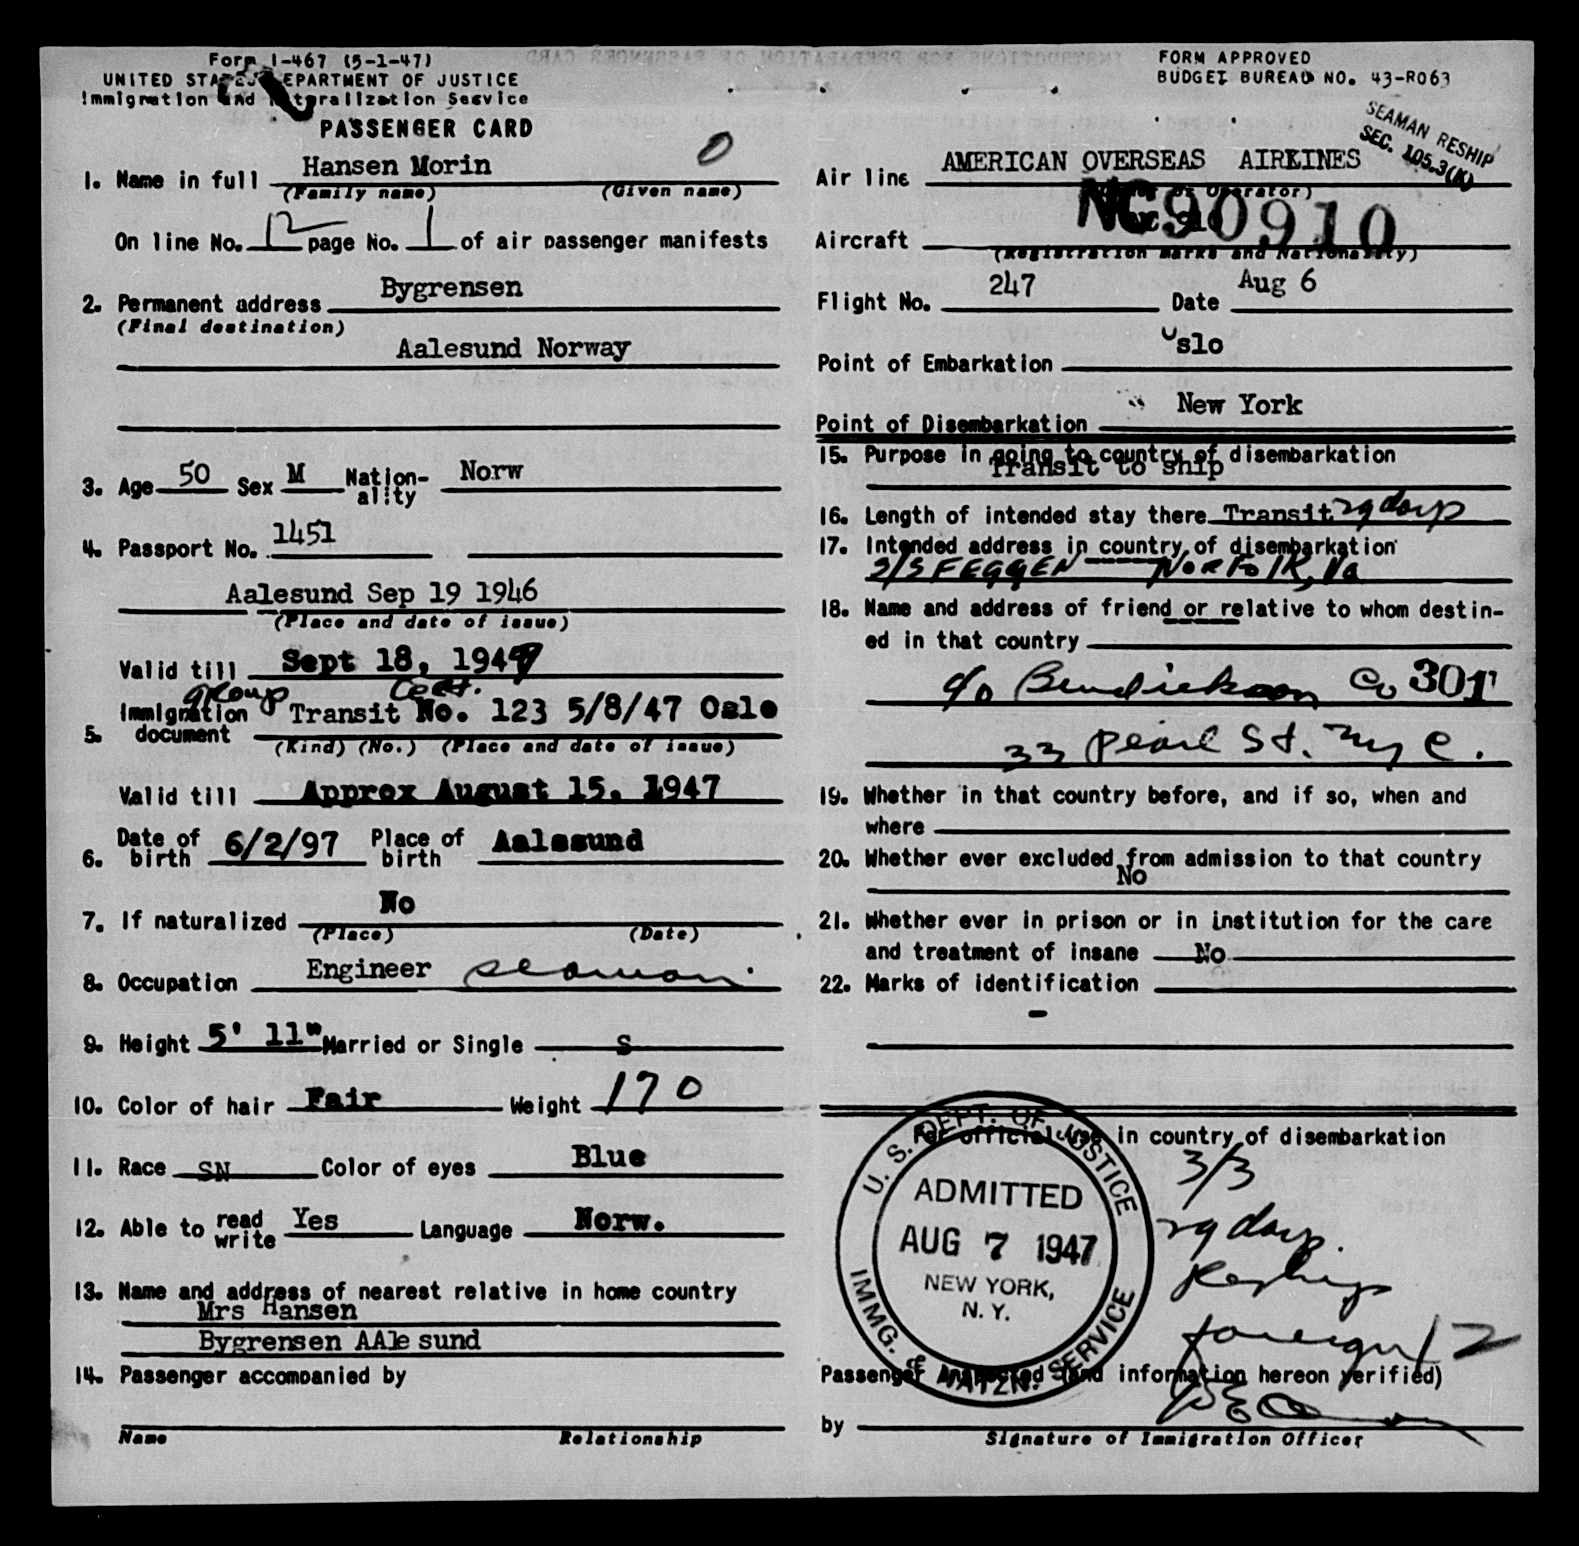 Form I-467 (5-1-47)
UNITED STATES DEPARTMENT OF JUSTICE
Immigration and Naturalization Service
PASSENGER CARD
FORM APPROVED
BUDGET BUREAU NO. 43-R063
SEAMAN RESHIP
SEC. 105.3(K)
1. Name in full Hansen Morin 0
(Family name) (Given name)
On line No. 12 page No. 1 of air passenger manifests
2. Permanent address Bygrensen
(Final destination)
Aalesund Norway
3. Age 50 Sex M Nation-ality Norw
4. Passport No. 1451
Aalesund Sep 19 1946
(Place and date of issue)
Valid till Sept 18, 1949
group Cert.
5. Immigration document Transit No. 123 5/8/47 Oslo
(Kind) (No.) (Place and date of issue)
Valid till Approx August 15, 1947
6. Date of birth 6/2/97 Place of birth Aalesund
7. If naturalized No
(Place) (Date)
8. Occupation Engineer seaman
9. Height 5' 11" Married or Single S
10. Color of hair Fair Weight 170
11. Race SN Color of eyes Blue
12. Able to read write Yes Language Norw.
13. Name and address of nearest relative in home country
Mrs Hansen
Bygrensen AAlesund
14. Passenger accompanied by
Name Relationship
Air line AMERICAN OVERSEAS AIRLINES
(Owner or Operator)
Aircraft NC90910
(Registration marks and Nationality)
Flight No. 247 Date Aug 6
Point of Embarkation Oslo
Point of Disembarkation New York
15. Purpose in going to country of disembarkation
Transit to ship
16. Length of intended stay there Transit 29 days
17. Intended address in country of disembarkation
S/S FEGGEN NORFOLK, Va
18. Name and address of friend or relative to whom destin-
ed in that country
c/o Bendickson Co 301
33 Pearl St. NYC.
19. Whether in that country before, and if so, when and
where
20. Whether ever excluded from admission to that country
No
21. Whether ever in prison or in institution for the care
and treatment of insane No
22. Marks of identification
-
For official use in country of disembarkation
U. S. DEPT. OF JUSTICE
ADMITTED
AUG 7 1947
NEW YORK,
N. Y.
IMMG. & NATZN. SERVICE
3/3
29 days.
Reship
foreign 12
Passenger inspected (and information hereon verified)
by
Signature of Immigration Officer